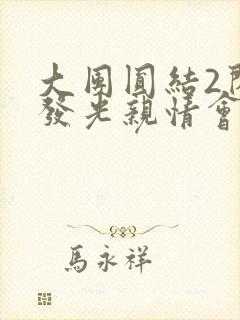 大團圓結2
發光親情會
馬永祥